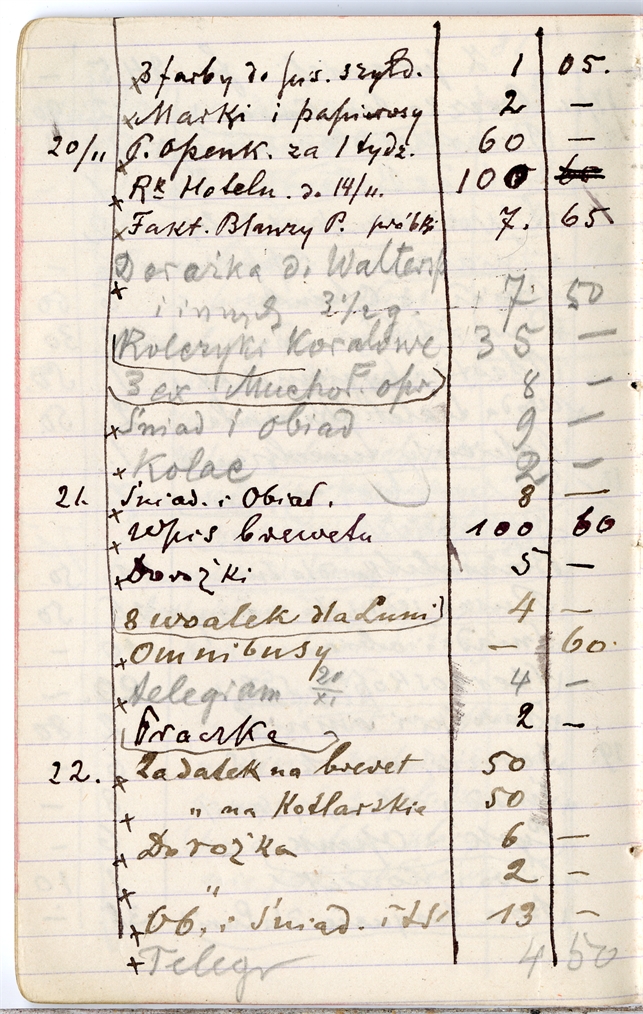 3 farby do pis. szyld. 1 05.
Marki i papierosy 2 —
20/11 J. Openk. za 1 tydz. 60 —
Rk Hotelu. do 14/11. 100 60
Fakt. Blawzy P. próbki 7. 65
Dorożka do
i innych 3 1/2 g. 7 50
Kolczyki Koralowe 35 —
3 ex Muchoł. opr 8 —
Śniad i Obiad 9 —
Kolac 2 —
21. Śniad. i Obiad. 8 —
Wpis brevetu 100 60
Dorożki 5 —
8 woalek dla Luni 4 —
Omnibusy — 60.
telegram 20/XI 4 —
Praczka 2 —
22. Zadatek na brevet 50
" na Kotlarskie 50
Dorożka 6 —
" 2 —
Ob. i Śniad. 13 —
Telegr 4 50